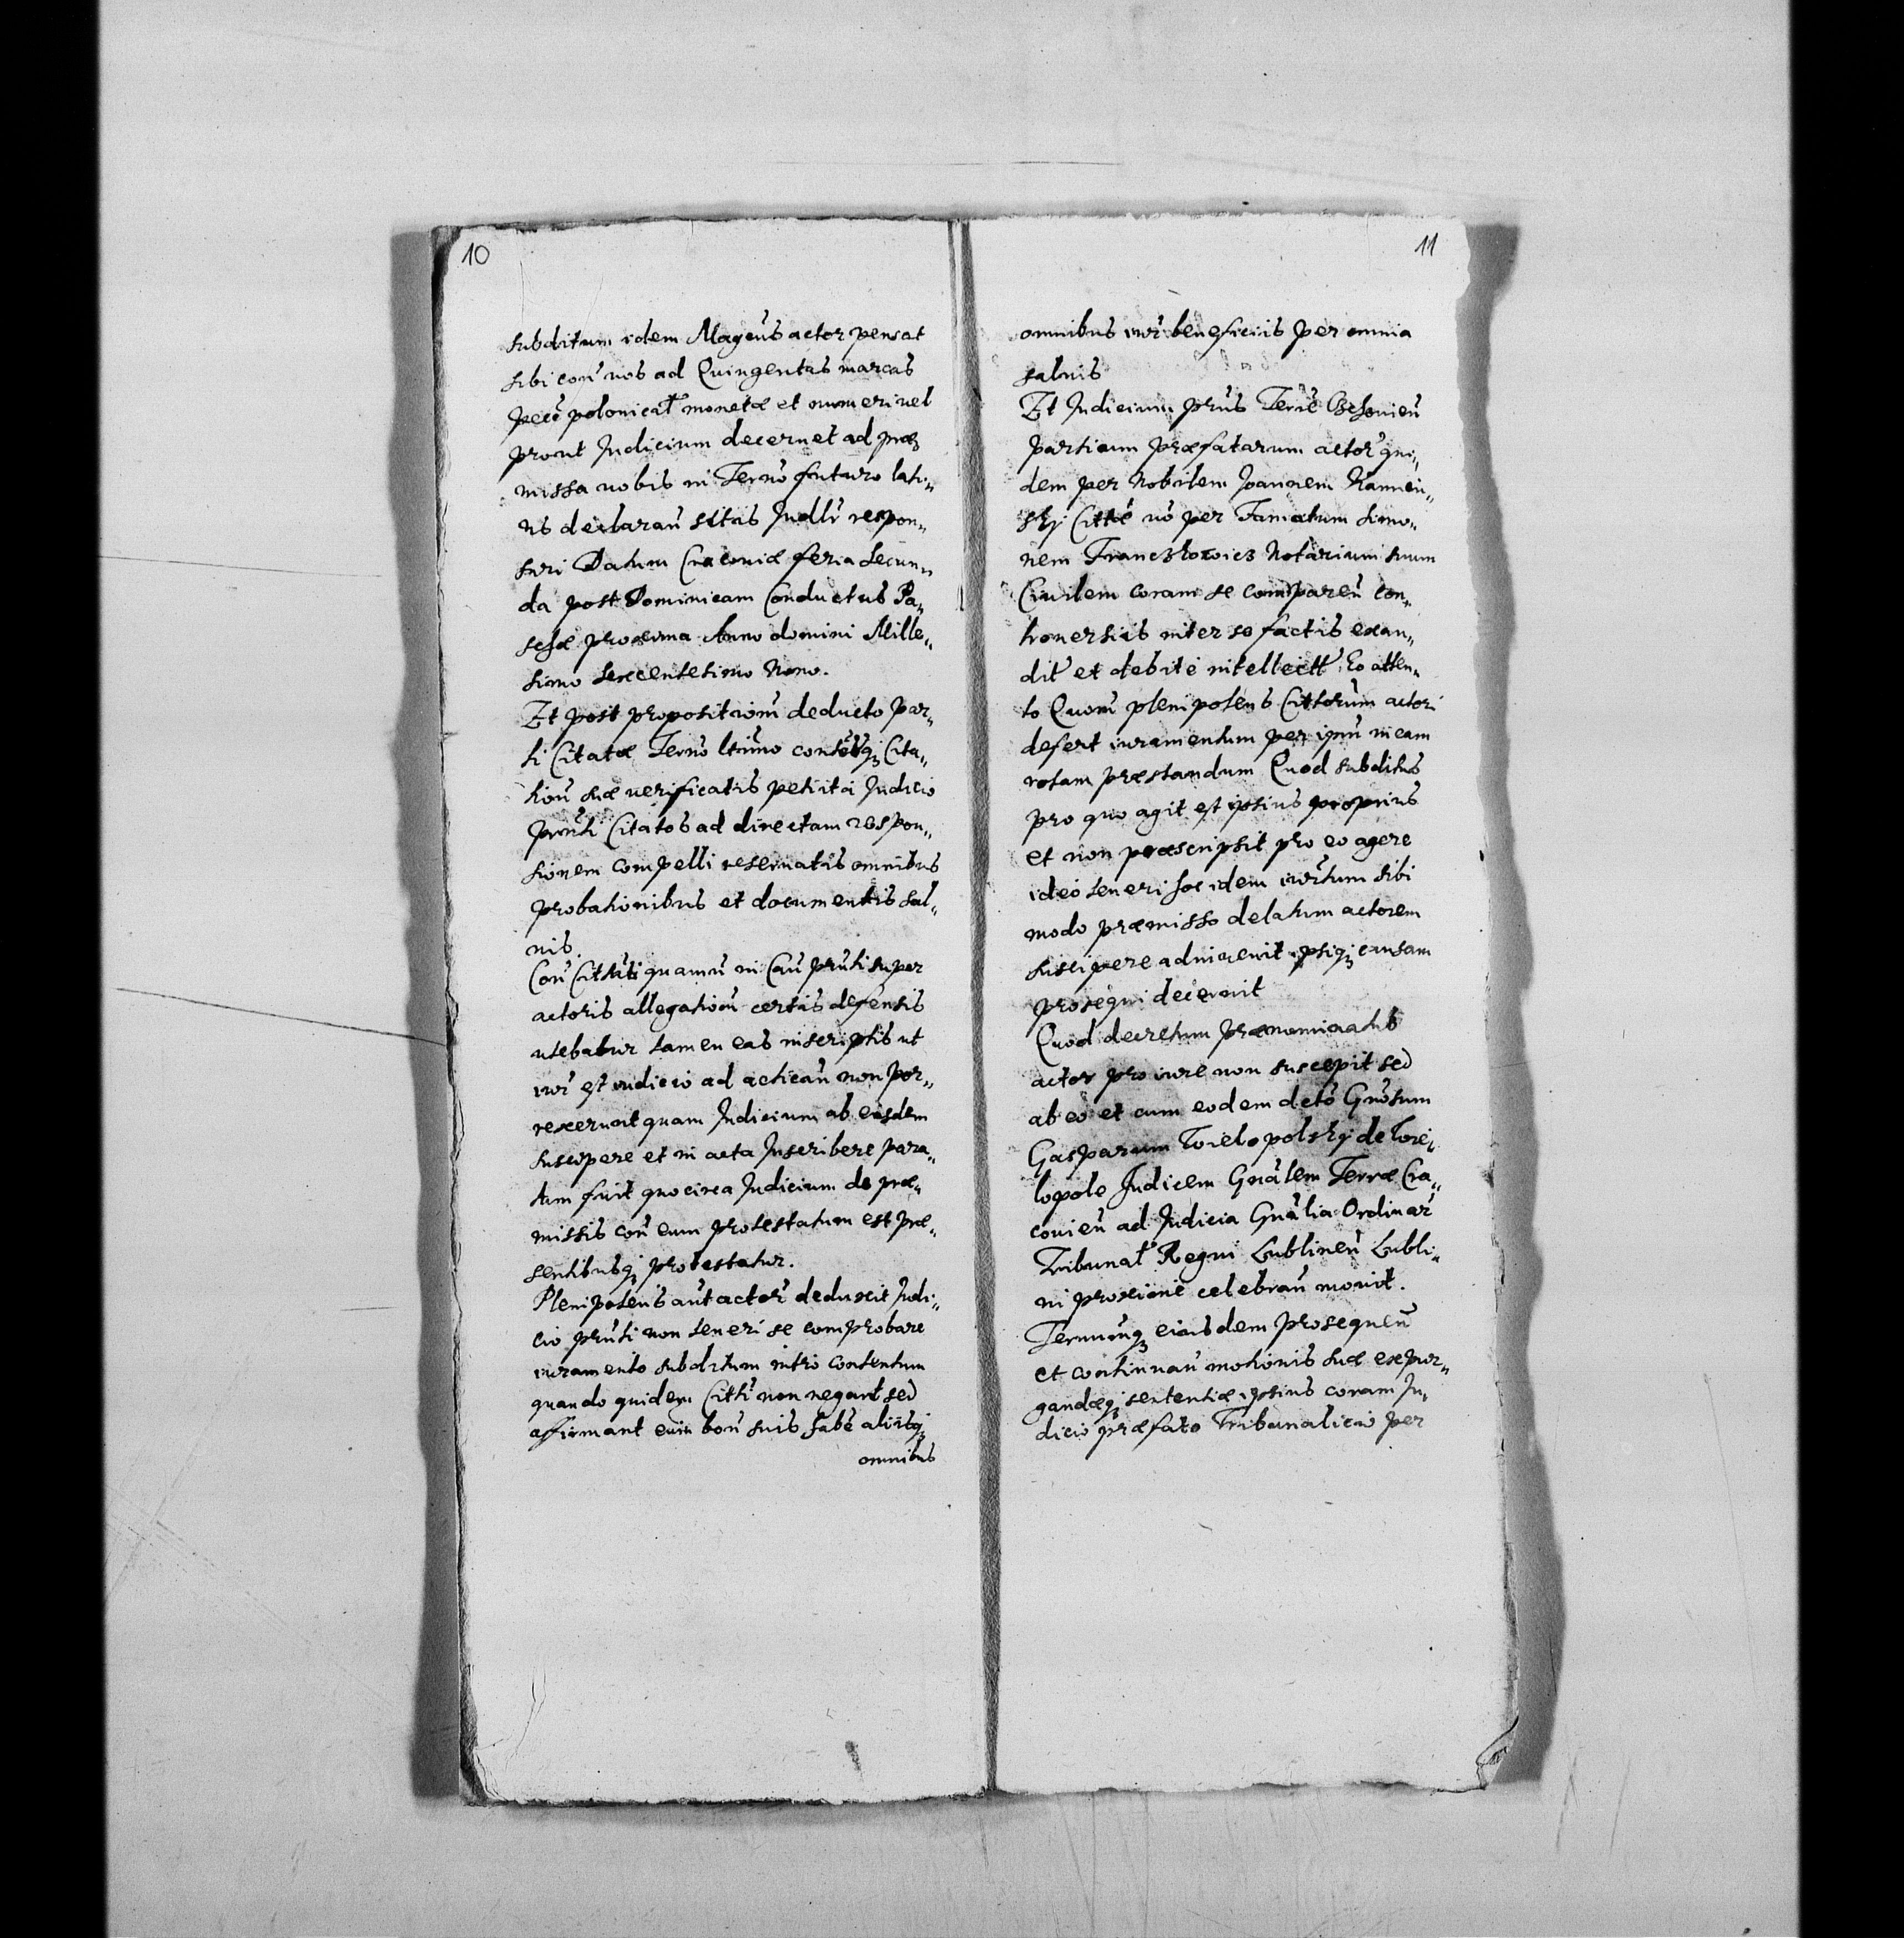 10
subditum idem Magcus actor pensat
sibi con nos ad Quingentas marcas
pecu polonical monetæ et numeri vel
prout Judicium decernet ad præ
missa nobis in Termo futuro lati„
us declaran scitis Judlr respon„
suri Datum Cracoviæ feria Secun„
da post Dominicam Conductus Pa„
schæ proxima Anno domini Mille„
simo Sexcentesimo Nono.
Et post propositionu deducto par„
ti Citatæ Termo ltimo contisq3 Cita„
tion suæ verificatis petiit a Judicio
prnti Citatos ad directam respon„
sionem compelli reservatis omnibus
probationibus et documentis sal„
vis.
Con Cittati quamu in Cau prnti super
actoris allegationu certis defensis
utebatur tamen eas inscriptis ut
iuri est iudicio ad acticau non por„
rexerunt quam Judicium ab eisdem
suscipere et in acta Inscribere para„
tum fuit quo circa Judicium de præ„
missis con eum protestatum est præ„
sentibusq3 protestatur.
Plenipotens aut actori deduxit Judi„
cio prnti non teneri se comprobare
iuramento subditum intro contentum
quando quidem Citti non negant sed
affirmant eum bon suis habe aliisq3
omnibus
11
omnibus iuri beneficiis per omnia
salvis
Et Judicium prns Terre Bchonien
partium præfatarum actor qui„
dem per Nobilem Joannem Kamien„
skj Citte vo per Famatum Simo„
nem Franczkowicz Notarium suum
Civilem coram se comparen con„
troversiis inter se factis exau„
dit et debite intellectt Eo atten„
to Quoni plenipotens Cittorum actori
defert iuramentum per ipm in eam
rotam præstandum Quod subditus
pro quo agit est ipsius proprius
et non præscripsit pro eo agere
ideo teneri hoc idem iurtum sibi
modo præmisso delatum actorem
suscipere adinvenit ipsiq3 causam
prosequi decernit
Quod decretum prænominatus
actor pro iure non suscepit sed
ab eo et cum eodem deto Gnosum
Gasparum Wielopolskj de Wiei„
lopole Judicem Gnalem Terræ Cra„
covien ad Judicia Gnalia Ordinar
Tribunal Regni Lublinen Lubli„
ni proxime celebran movit.
Terminuq3 eiusdem prosequen
et continuan motionis suæ expur„
gandæq3 sententiæ ipsius coram Ju„
dicio præfato Tribunalicio per